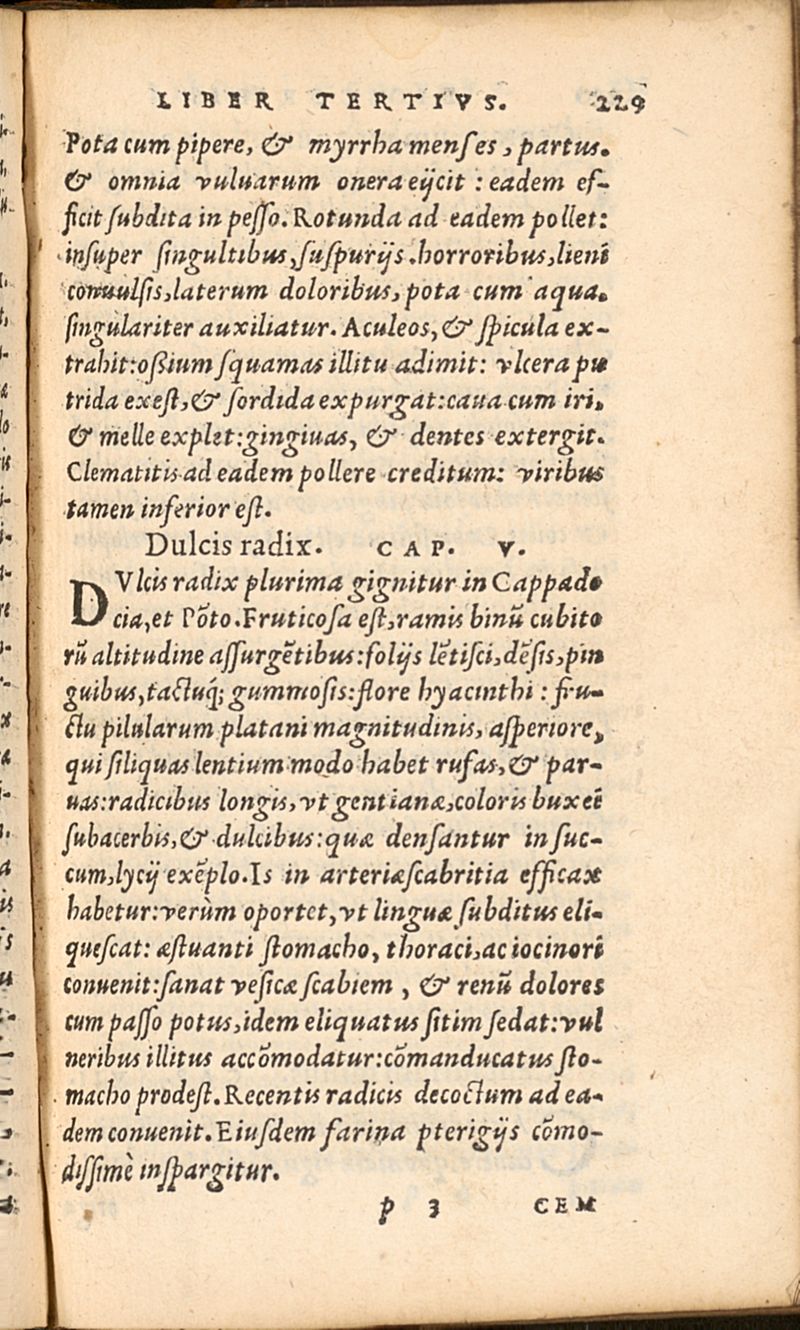 LIBER TERTIVS. 229
Pota cum pipere, & myrrha menſes, partus.
& omnia vuluarum onera eijcit : eadem ef-
ficit ſubdita in peſſo. Rotunda ad eadem pollet:
inſuper ſingultibus, ſuſpurijs .horroribus, lieni
conuulſis, laterum doloribus, pota cum aqua.
ſingulariter auxiliatur. Aculeos, & ſpicula ex-
trahit: oſsium ſquamas illitu adimit: vlcera pu
trida exeſt, & ſordida expurgat: caua cum iri,
& melle explet: gingiuas, & dentes extergit.
Clematitis ad eadem pollere creditum: viribus
tamen inferior eſt.
Dulcis radix. CAP. V.
DVlcis radix plurima gignitur in Cappado
cia, et Põto. Fruticoſa eſt, ramis binũ cubito
rũ altitudine aſſurgẽtibus: folijs lẽtiſci, dẽſis, pin
guibus, tactuq́; gummoſis: flore hyacinthi : fru-
ctu pilularum platani magnitudinis, aſperiore,
qui ſiliquas lentium modo habet rufas, & par-
uas: radicibus longis, vt gentianæ, coloris buxei
ſubacerbis, & dulcibus: quæ denſantur in ſuc-
cum, lycij exẽplo. Is in arteriæ ſcabritia efficax
habetur: verùm oportet, vt linguæ ſubditus eli-
queſcat: æſtuanti ſtomacho, thoraci, ac iocinori
conuenit: ſanat veſicæ ſcabiem , & renũ dolores
cum paſſo potus, idem eliquatus ſitim ſedat: vul
neribus illitus accõmodatur: cõmanducatus ſto-
macho prodeſt. Recentis radicis decoctum ad ea-
dem conuenit. Eiuſdem farina pterigijs cõmo-
diſſimè inſpargitur.
p 3 CEM